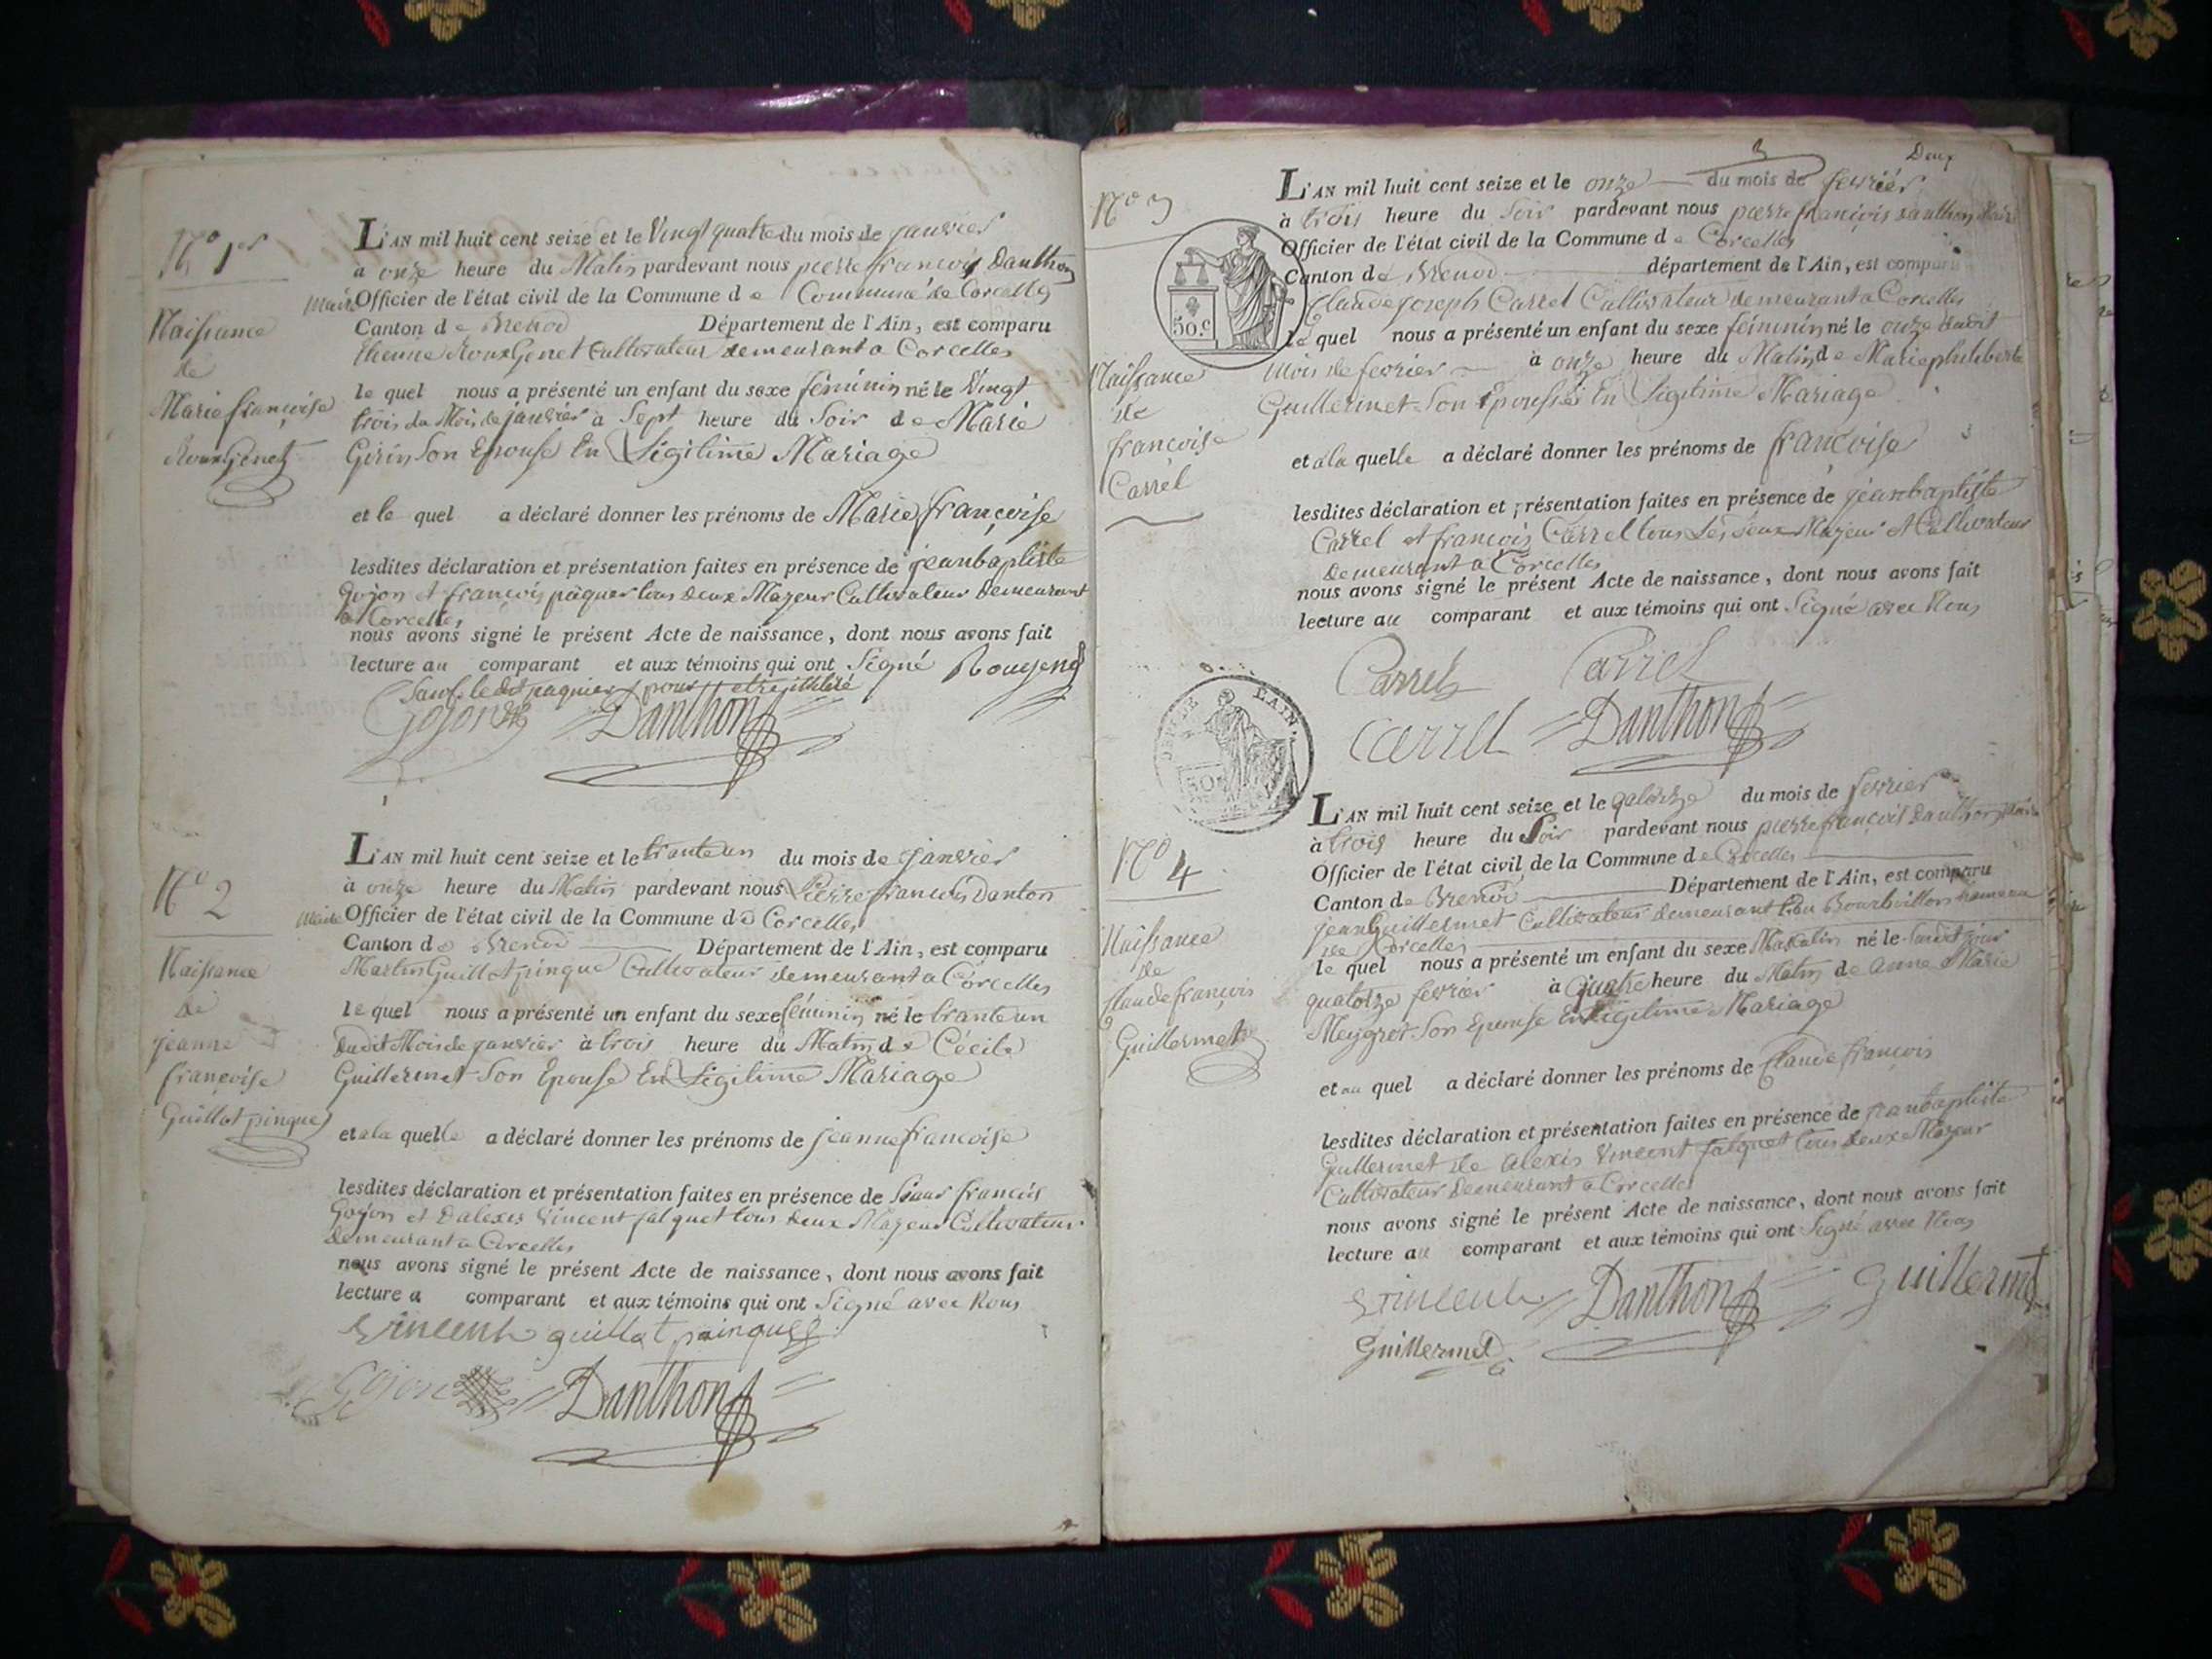 N.o 1er
Naissance
de
Marie françoise
Roux Genet
L'AN mil huit cent seize et le Vingt quatre du mois de janvier
à onze heure du Matin pardevant nous pierre françois Danthon
Maire Officier de l'état civil de la Commune de Commune de Corcelles
Canton de Brenod Département de l'Ain, est comparu
Etienne Roux Genet Cultivateur demeurant a Corcelles
le quel nous a présenté un enfant du sexe féminin né le Vingt
trois du Mois de janvier à Sept heure du Soir de Marie
Girin Son Epouse En Légitime Mariage
et le quel a déclaré donner les prénoms de Marie françoise
lesdites déclaration et présentation faites en présence de jean baptiste
Gojon et françois pâquier tous deux Mazeur Cultivateur demeurant
a Corcelles
nous avons signé le présent Acte de naissance, dont nous avons fait
lecture au comparant et aux témoins qui ont Signé Rougenet
Sauf le dit paquier pour
Gojon Danthon
N.o 2
Naissance
de
jeanne
françoise
Guillot pinque
L'AN mil huit cent seize et le trante un du mois de janvier
à onze heure du Matin pardevant nous Pierre francois Danton
Maire Officier de l'état civil de la Commune de Corcelles
Canton de Brenod Département de l'Ain, est comparu
Martin Guillot pinque Cultivateur demeurant a Corcelles
le quel nous a présenté un enfant du sexe féminin né le trante un
dudit Mois de janvier à trois heure du Matin de Cécile
Guillermet Son Epouse En Légitime Mariage
et a la quelle a déclaré donner les prénoms de jeanne francoise
lesdites déclaration et présentation faites en présence de françois
Gojon et d'alexis Vincent falquet tous deux Mazeur Cultivateur
demeurant a Corcelles
nous avons signé le présent Acte de naissance, dont nous avons fait
lecture a comparant et aux témoins qui ont Signé avec Nous
Vincent guillot painque
Gojon Danthon
3 Deux
N.o 3
50.c
Naissance
de
francoise
Carrel
L'AN mil huit cent seize et le onze du mois de fevrier
à trois heure du Soir pardevant nous pierre françois danthon Maire
Officier de l'état civil de la Commune de Corcelles
Canton de Brenod département de l'Ain, est comparu
Claude joseph Carrel Cultivateur demeurant a Corcelles
le quel nous a présenté un enfant du sexe féminin né le onze dudit
Mois de fevrier à onze heure du Matin de Marie philiberte
Guillermet Son Epousse En Légitime Mariage
et a la quelle a déclaré donner les prénoms de françoise
lesdites déclaration et présentation faites en présence de jean baptiste
Carrel et françois Carrel tous Les deux Mazeur et Cultivateur
demeurant a Corcelles
nous avons signé le présent Acte de naissance, dont nous avons fait
lecture au comparant et aux témoins qui ont Signé avec Nous
Carrel Carrel
Carrel Danthon
DEPT. DE L'AIN.
N.o 4
Naissance
de
Claude françois
Guillermet
L'AN mil huit cent seize et le quatorze du mois de fevrier
à trois heure du Soir pardevant nous pierre françois danthon Maire
Officier de l'état civil de la Commune de Corcelles
Canton de Brenod Département de l'Ain, est comparu
jean Guillermet Cultivateur demeurant hameau
de Corcelles
le quel nous a présenté un enfant du sexe Masculin né le Sudit jour
quatorze fevrier à quatre heure du Matin de anne Marie
Meygret Son Epouse En Légitime Mariage
et au quel a déclaré donner les prénoms de Claude françois
lesdites déclaration et présentation faites en présence de jean baptiste
Guillermet de alexis Vincent falquet tous deux Mazeur
Cultivateur demeurant a Corcelles
nous avons signé le présent Acte de naissance, dont nous avons fait
lecture au comparant et aux témoins qui ont Signé avec Nous
Vincent Danthon Guillermet
Guillermet